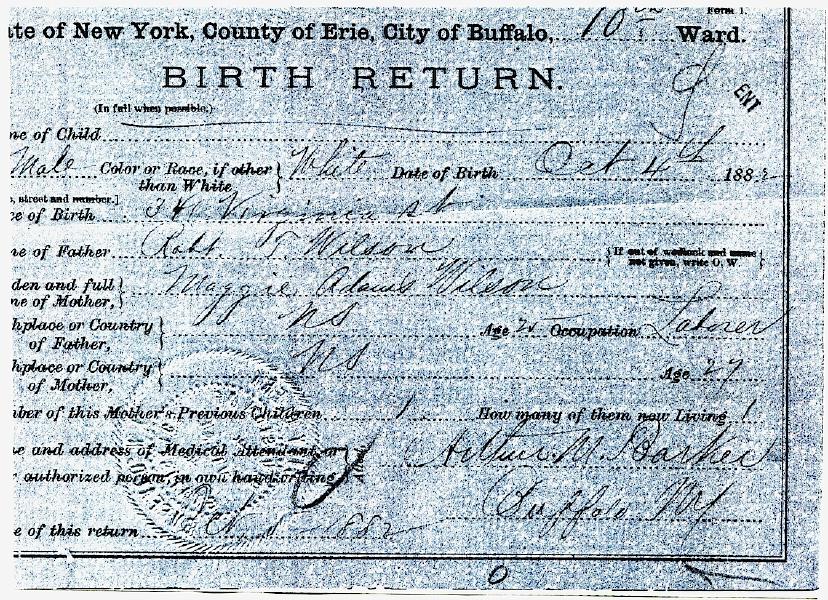 Form 1.
te of New York, County of Erie, City of Buffalo, 10th Ward.
BIRTH RETURN.
ENT
(In full when possible.)
ne of Child
Male Color or Race, if other than White } White Date of Birth Oct 4th 1882
, street and number.]
ce of Birth Virginia st
ne of Father Robt T Wilson {If out of wedlock and name not given, write O. W.}
den and full
ne of Mother, } Maggie Adams Wilson
hplace or Country
of Father, } Age Occupation Laborer
hplace or Country
of Mother, } Age 27
ber of this Mother's Previous Children 1 How many of them now Living 1
e and address of Medical Attendant or } Arthur M. Barker
r authorized person, in own handwriting
Buffalo NY
e of this return 1882